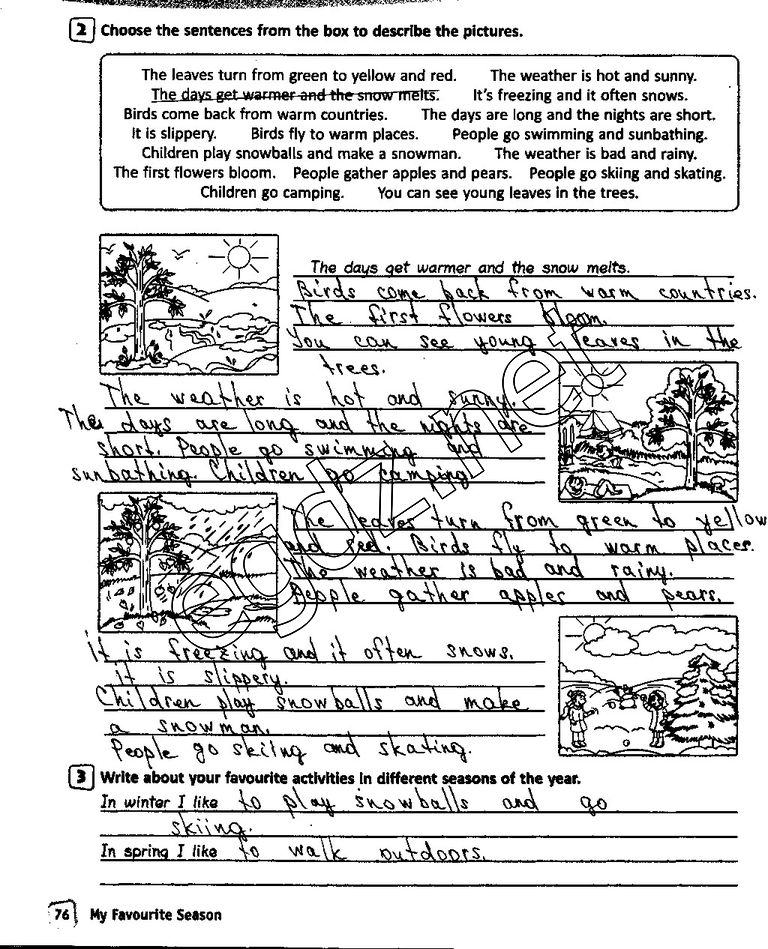 2 Choose the sentences from the box to describe the pictures.
The leaves turn from green to yellow and red. The weather is hot and sunny.
The days get warmer and the snow melts. It's freezing and it often snows.
Birds come back from warm countries. The days are long and the nights are short.
It is slippery. Birds fly to warm places. People go swimming and sunbathing.
Children play snowballs and make a snowman. The weather is bad and rainy.
The first flowers bloom. People gather apples and pears. People go skiing and skating.
Children go camping. You can see young leaves in the trees.
The days get warmer and the snow melts.
Birds come back from warm countries.
The first flowers bloom.
You can see young leaves in the
trees.
The weather is hot and sunny.
The days are long and the nights are
short. People go swimming and
sunbathing. Children go camping.
The leaves turn from green to yellow
and red. Birds fly to warm places.
The weather is bad and rainy.
People gather apples and pears.
it is freezing and it often snows.
it is slippery.
Children play snowballs and make
a snowman.
People go skiing and skating.
3 Write about your favourite activities in different seasons of the year.
In winter I like to play snowballs and go
skiing.
In spring I like to walk outdoors.
76 My Favourite Season
egdz.net